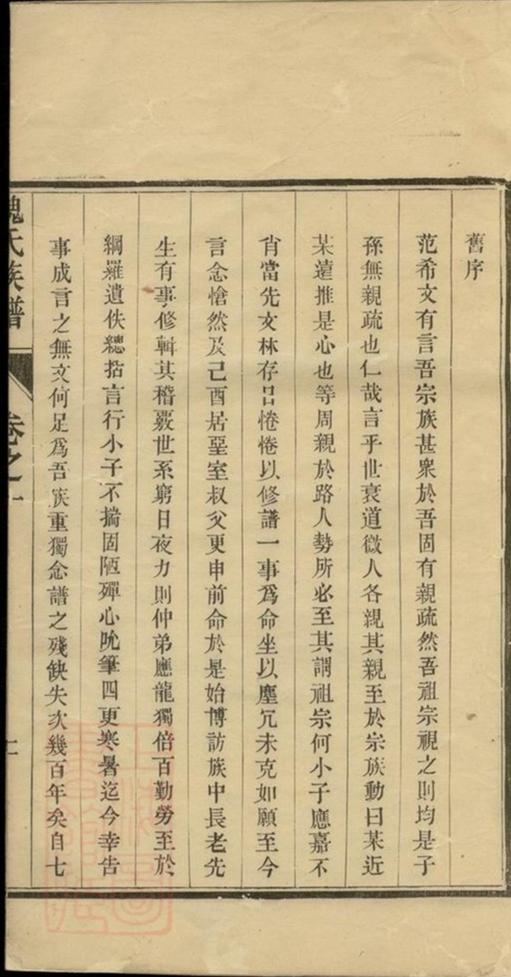 舊序
范希文有言吾宗族甚衆於吾固有親疏然吾祖宗視之則均是子
孫無親疏也仁哉言乎世衰道微人各親其親至於宗族動曰某近
某遠推是心也等周親於路人勢所必至其謂祖宗何小子應嘉不
肖當先文林存日惓惓以修譜一事爲命坐以塵冗未克如願至今
言念愴然及己酉居堊室叔父更申前命於是始博訪族中長老先
生有事修輯其稽覈世系窮日夜力則仲弟應龍獨倍百勤勞至於
綱羅遺佚總括言行小子不揣固陋殫心吮筆四更寒暑迄今幸告
事成言之無文何足爲吾族重獨念譜之殘缺失次幾百年矣自七
魏氏族譜
卷之一